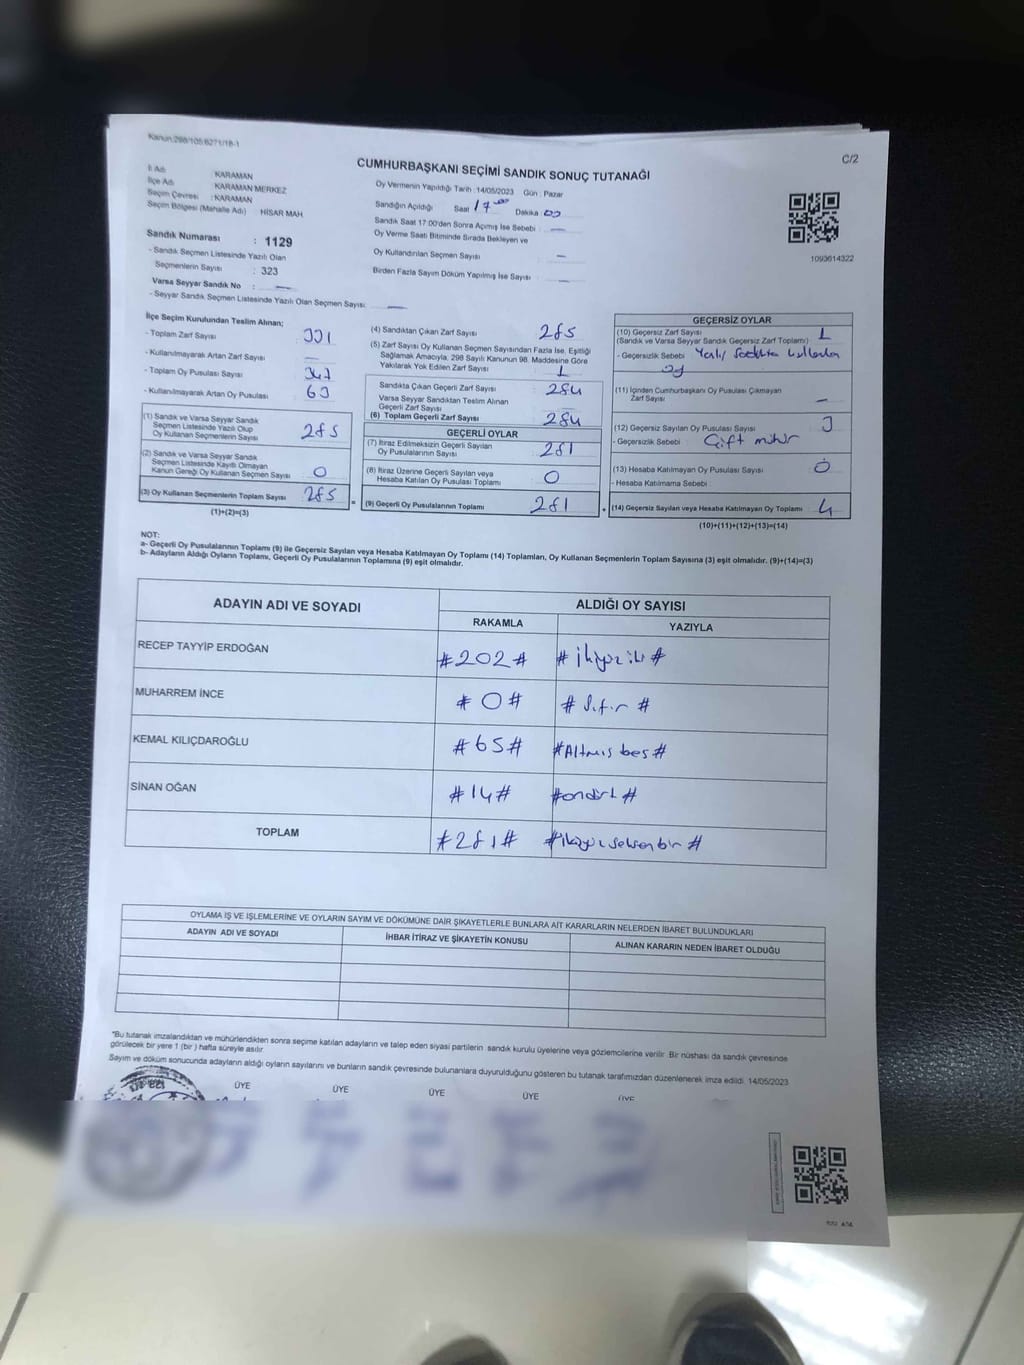 Kanun:298/105/6271/18-1
C/2
CUMHURBAŞKANI SEÇİMİ SANDIK SONUÇ TUTANAĞI
İl Adı : KARAMAN
İlçe Adı : KARAMAN MERKEZ
Seçim Çevresi : KARAMAN
Seçim Bölgesi (Mahalle Adı) HİSAR MAH
Oy Vermenin Yapıldığı Tarih :14/05/2023 Gün : Pazar
Sandığın Açıldığı Saat 17 00 Dakika 00
Sandık Saat 17.00'den Sonra Açmış İse Sebebi : —
Oy Verme Saati Bitiminde Sırada Bekleyen ve
Oy Kullandırılan Seçmen Sayısı : —
Birden Fazla Sayım Döküm Yapılmış İse Sayısı : —
1093614322
Sandık Numarası : 1129
- Sandık Seçmen Listesinde Yazılı Olan
Seçmenlerin Sayısı : 323
Varsa Seyyar Sandık No : —
- Seyyar Sandık Seçmen Listesinde Yazılı Olan Seçmen Sayısı: —
İlçe Seçim Kurulundan Teslim Alınan;
- Toplam Zarf Sayısı : 331
- Kullanılmayarak Artan Zarf Sayısı : —
- Toplam Oy Pusulası Sayısı : 347
- Kullanılmayarak Artan Oy Pusulası : 63
(1) Sandık ve Varsa Seyyar Sandık
Seçmen Listesinde Yazılı Olup
Oy Kullanan Seçmenlerin Sayısı : 285
(2) Sandık ve Varsa Seyyar Sandık
Seçmen Listesinde Kayıtlı Olmayan
Kanun Gereği Oy Kullanan Seçmen Sayısı : 0
(3) Oy Kullanan Seçmenlerin Toplam Sayısı : 285
(1)+(2)=(3)
(4) Sandıktan Çıkan Zarf Sayısı : 285
(5) Zarf Sayısı Oy Kullanan Seçmen Sayısından Fazla İse, Eşitliği
Sağlamak Amacıyla, 298 Sayılı Kanunun 98. Maddesine Göre
Yakılarak Yok Edilen Zarf Sayısı : 1
Sandıkta Çıkan Geçerli Zarf Sayısı : 284
Varsa Seyyar Sandıktan Teslim Alınan
Geçerli Zarf Sayısı
(6) Toplam Geçerli Zarf Sayısı : 284
GEÇERLİ OYLAR
(7) İtiraz Edilmeksizin Geçerli Sayılan
Oy Pusulalarının Sayısı : 281
(8) İtiraz Üzerine Geçerli Sayılan veya
Hesaba Katılan Oy Pusulası Toplamı : 0
(9) Geçerli Oy Pusulalarının Toplamı 281
GEÇERSİZ OYLAR
(10) Geçersiz Zarf Sayısı : 1
(Sandık ve Varsa Seyyar Sandık Geçersiz Zarf Toplamı)
- Geçersizlik Sebebi : Yanlış Sandıkta kullanılan
oy
(11) İçinden Cumhurbaşkanı Oy Pusulası Çıkmayan
Zarf Sayısı : —
(12) Geçersiz Sayılan Oy Pusulası Sayısı : 3
- Geçersizlik Sebebi : Çift mühür
(13) Hesaba Katılmayan Oy Pusulası Sayısı : 0
- Hesaba Katılmama Sebebi :
(14) Geçersiz Sayılan veya Hesaba Katılmayan Oy Toplamı : 4
(10)+(11)+(12)+(13)=(14)
NOT:
a- Geçerli Oy Pusulalarının Toplamı (9) ile Geçersiz Sayılan veya Hesaba Katılmayan Oy Toplamı (14) Toplamları, Oy Kullanan Seçmenlerin Toplam Sayısına (3) eşit olmalıdır. (9)+(14)=(3)
b- Adayların Aldığı Oyların Toplamı, Geçerli Oy Pusulalarının Toplamına (9) eşit olmalıdır.
ADAYIN ADI VE SOYADI ALDIĞI OY SAYISI
RAKAMLA YAZIYLA
RECEP TAYYİP ERDOĞAN #202# #ikiyüziki#
MUHARREM İNCE #0# #Sıfır#
KEMAL KILIÇDAROĞLU #65# #Altmış beş#
SİNAN OĞAN #14# #ondört#
TOPLAM #281# #ikiyüzseksenbir#
OYLAMA İŞ VE İŞLEMLERİNE VE OYLARIN SAYIM VE DÖKÜMÜNE DAİR ŞİKAYETLERLE BUNLARA AİT KARARLARIN NELERDEN İBARET BULUNDUKLARI
ADAYIN ADI VE SOYADI İHBAR İTİRAZ VE ŞİKAYETİN KONUSU ALINAN KARARIN NEDEN İBARET OLDUĞU
*Bu tutanak imzalandıktan ve mühürlendikten sonra seçime katılan adayların ve talep eden siyasi partilerin sandık kurulu üyelerine veya gözlemcilerine verilir. Bir nüshası da sandık çevresinde
görülecek bir yere 1 (bir) hafta süreyle asılır.
Sayım ve döküm sonucunda adayların aldığı oyların sayılarını ve bunların sandık çevresinde bulunanlara duyurulduğunu gösteren bu tutanak tarafımızdan düzenlenerek imza edildi. 14/05/2023
ÜYE ÜYE ÜYE ÜYE ÜYE